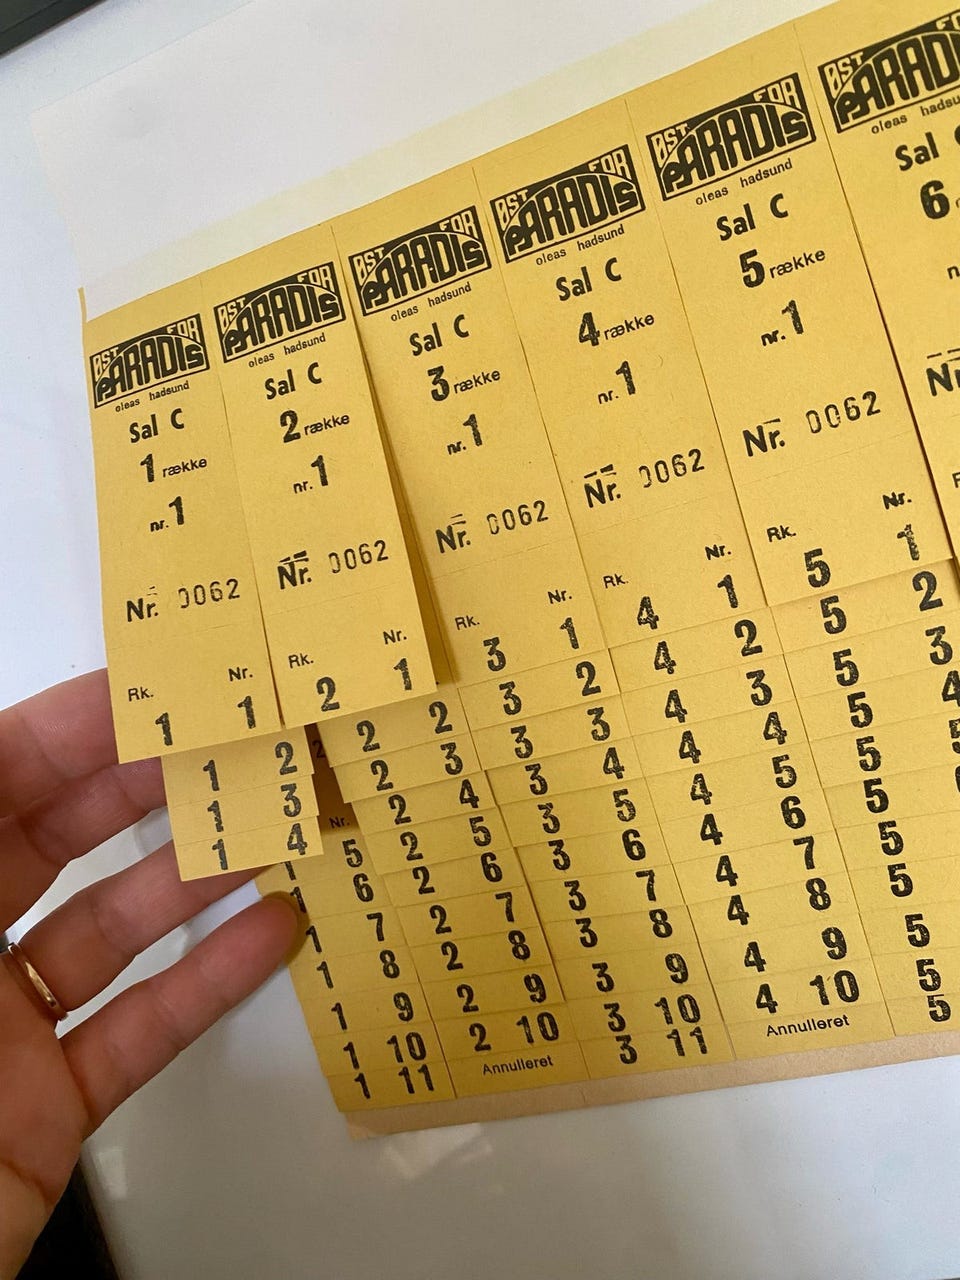 ØST FOR
PARADIS
oleas hadsund
Sal C
1 række
nr. 1
Nr. 0062
Rk. Nr.
1 1
1 2
1 3
1 4
Nr.
1 5
1 6
1 7
1 8
1 9
1 10
1 11
ØST FOR
PARADIS
oleas hadsund
Sal C
2 række
nr. 1
Nr. 0062
Rk. Nr.
2 1
2 2
2 3
2 4
2 5
2 6
2 7
2 8
2 9
2 10
Annulleret
ØST FOR
PARADIS
oleas hadsund
Sal C
3 række
nr. 1
Nr. 0062
Rk. Nr.
3 1
3 2
3 3
3 4
3 5
3 6
3 7
3 8
3 9
3 10
3 11
ØST FOR
PARADIS
oleas hadsund
Sal C
4 række
nr. 1
Nr. 0062
Rk. Nr.
4 1
4 2
4 3
4 4
4 5
4 6
4 7
4 8
4 9
4 10
Annulleret
ØST FOR
PARADIS
oleas hadsund
Sal C
5 række
nr. 1
Nr. 0062
Rk. Nr.
5 1
5 2
5 3
5 4
5
5
5
5
5
5
5
ØST
PARADIS
oleas
Sal
6